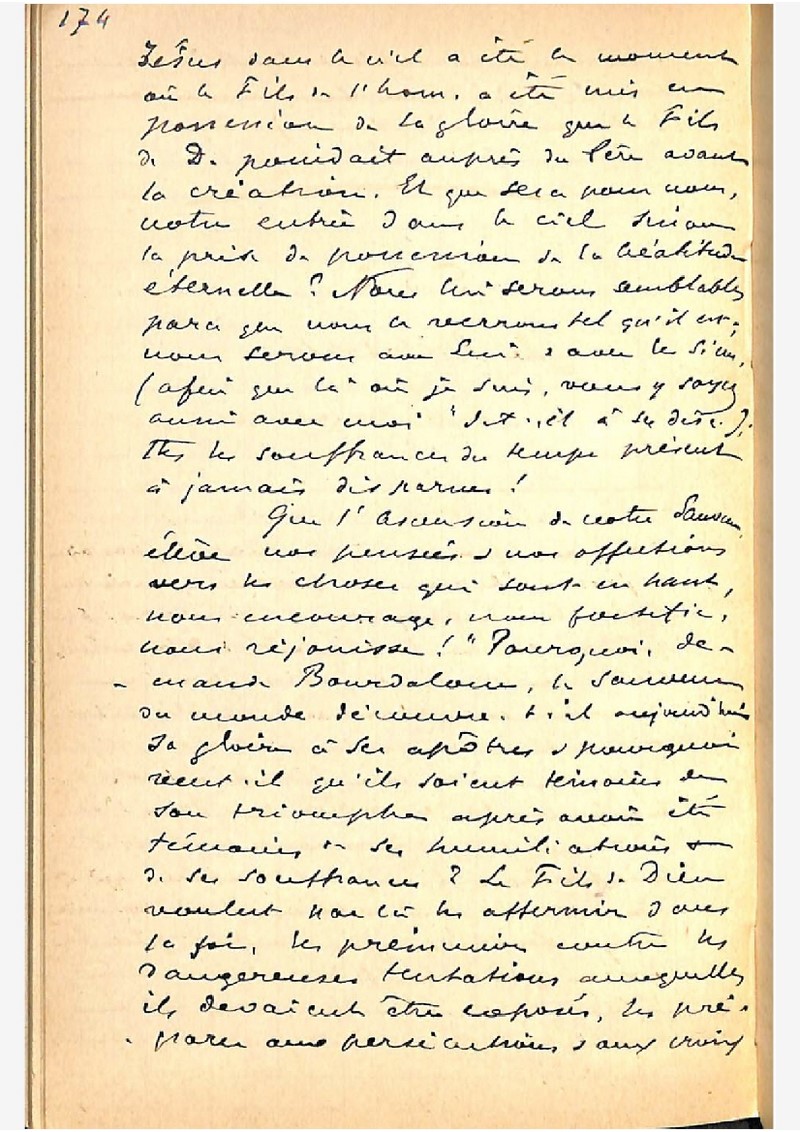 174
Jésus dans le ciel a été le moment
où le Fils de l'hom. a été mis en
possession de la gloire que le Fils
de D. possédait auprès du Père avant
la création. Et que sera pour nous,
notre entrée dans le ciel sinon
la prise de possession de la béatitude
éternelle ? Nous lui serons semblables
parce que nous le verrons tel qu'il est ;
nous serons avec Lui & avec les siens,
(afin que là où je suis, vous y soyez
aussi avec moi" dit-il à ses disc.).
Ttes les souffrances du temps présent
à jamais disparues !
Que l'Ascension de notre Sauveur
élève nos pensées & nos affections
vers les choses qui sont en haut,
nous encourage, nous fortifie,
nous réjouisse ! "Pourquoi, de-
mande Bourdaloue, le Sauveur
du monde découvre-t-il aujourd'hui
sa gloire à ses apôtres & pourquoi
veut-il qu'ils soient témoins de
son triomphe après avoir été
témoins de ses humiliations &
de ses souffrances ? Le Fils de Dieu
voulut par là les affermir dans
la foi, les prémunir contre les
dangereuses tentations auxquelles
ils devaient être exposés, les pré-
parer aux persécutions & aux croix